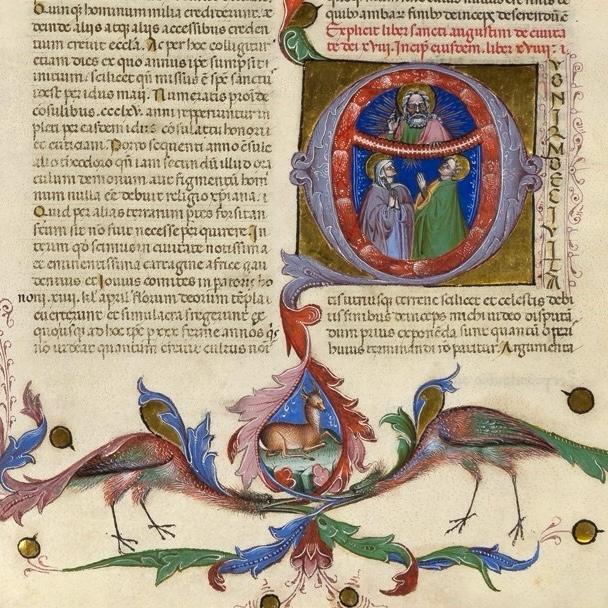 quo hominum milia crediderunt.
deinde aliis atque aliis accessibus creden
tium creuit eccla. Ac per hoc colligitur
etiam dies ex quo annus ipse sumpsit
initium: scilicet quando missus est sps sanctus
id est per idus maij. Numeratis proinde
cosulibus. ccclxv. anni reperiuntur im
pleti per easdem idus cosulatu honorij
et euticiani. Porro sequenti anno csule
mallio theodoro quando iam secundum illud ora
culum demonum aut figmentum hominum
nulla esse debuit religio xpiana.
Quid per alias terrarum partes forsitan
factum sit no fuit necesse perquirere. In
terim quod scimus in ciuitate notissima
et eminentissima cartagine africe gau
dentius et Iouius comites imperatoris ho
norij. xiiij. kal. april. falsorum deorum templa
euerterunt et simulacra fregerunt. Ex
quo usque ad hoc tempus per xxx ferme annos quis
no uideat quantum creuit cultus nois
quibus ambarum finibus deinceps
Explicit liber sancti augustini de ciuita
te dei xviij. Incipit eiusdem. liber xviiij. i.
VONIAM DE CIVITA
tis utriusque terrene scilicet et celestis debi
tis finibus deinceps michi uideo disputan
dum prius exponenda sunt quantum operis
huius terminandi ratio patitur. Argumenta